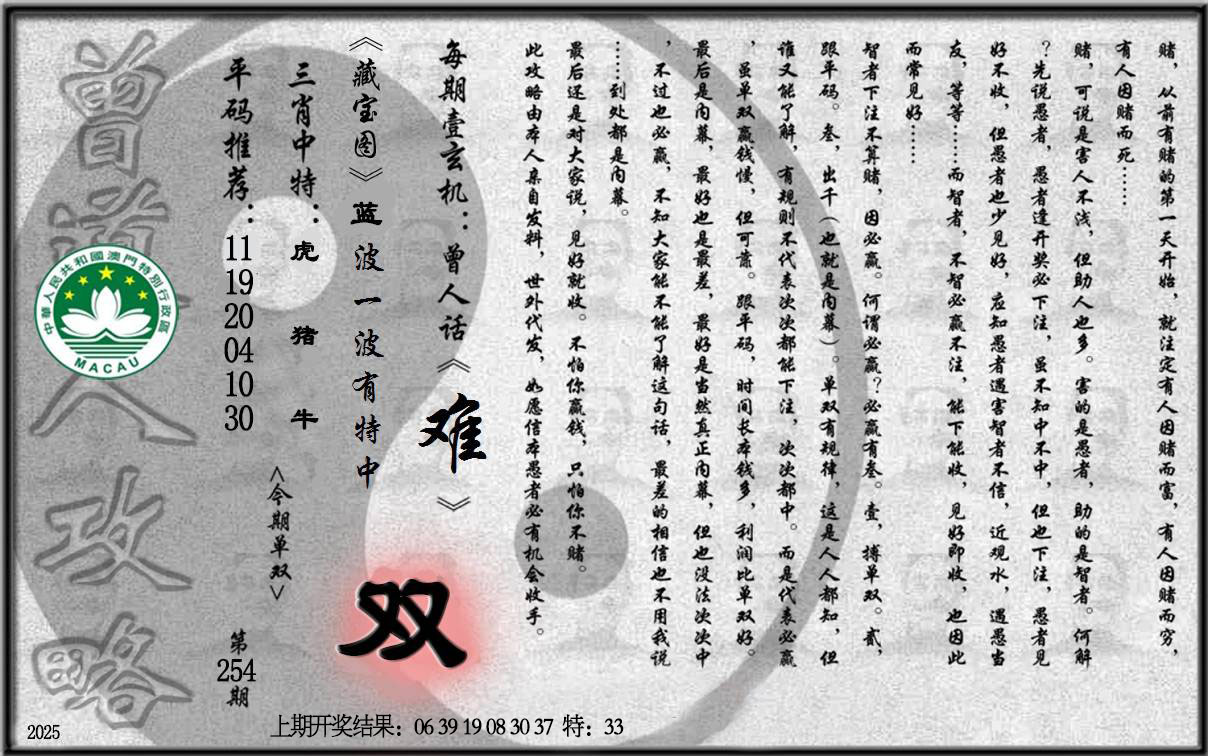 赌，从前有赌的第一天开始，就注定有人因赌而富，有人因赌而穷，
有人因赌而死……
赌，可说是害人不浅，但助人也多。害的是愚者，助的是智者。何解
？先说愚者，愚者逢开奖必下注，虽不知中不中，但也下注，愚者见
好不收，但愚者也少见好，应知愚者遇害智者不信，近观水，遇愚当
友，等等……而智者，不智必赢不注，能下能收，见好即收，也因此
而常见好……
智者下注不算赌，因必赢。何谓必赢？必赢有叁。壹，搏单双。贰，
跟平码。叁，出千（也就是内幕）。单双有规律，这是人人都知，但
谁又能了解，有规则不代表次次都能下注，次次都中。而是代表必赢
，虽单双赢钱慢，但可靠。跟平码，时间长本钱多，利润比单双好。
最后是内幕，最好也是最差，最好是当然真正内幕，但也没法次次中
，不过也必赢，不知大家能不能了解这句话，最差的相信也不用我说
……到处都是内幕。
最后还是对大家说，见好就收。不怕你赢钱，只怕你不赌。
此攻略由本人亲自发料，世外代发，如愿信本愚者必有机会收手。
每期壹玄机：曾人话《难》
《藏宝图》蓝波一波有特中
双
三肖中特：虎 猪 牛
<今期单双>
平码推荐：11 19 20 04 10 30
第254期
曾道人攻略
中華人民共和國澳門特別行政區
MACAU
2025
上期开奖结果：06 39 19 08 30 37 特：33